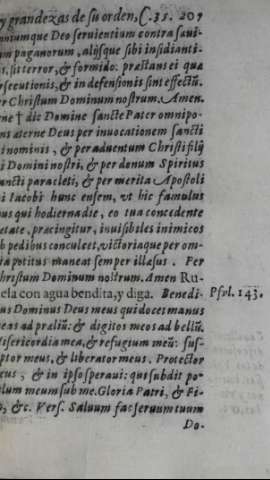 y grandezas de su orden, C. 35. 207
tumque Deo seruientium contra saui-
m paganorum, alijsque sibi insidianti-
, sis terror, & formido. præstans ei qua
rsecutionis, & in defensionis sint effectū.
er Christum Dominum nostrum. Amen.
ne † dic Domine sancte Pater omnipo-
ns æterne Deus per inuocationem sancti
i nominis, & per aduentum Christi filij
i Domini nostri, & per donum Spiritus
ncti paracleti, & per merita Apostoli
i Iacobi hunc ensem, vt hic famulus
us qui hodierna die, eo tua concedente
etate, præcingitur, inuisibiles inimicos
b pedibus conculcet, victoriaque per om-
ia potitus maneat semper illæsus. Per
hristum Dominum nostrum. Amen Ru-
ela con agua bendita, y diga. Benedi- Psal. 143.
us Dominus Deus meus qui docet manus
eas ad prælīū. & digitos meos ad bellū.
isericordia mea, & refugium meū: sus-
ptor meus, & liberator meus. Protector
eus, & in ipso speraui: qui subdit po-
ulum meum sub me. Gloria Patri, & Fi-
o, &c. Vers. Saluum fac seruum tuum
Do-